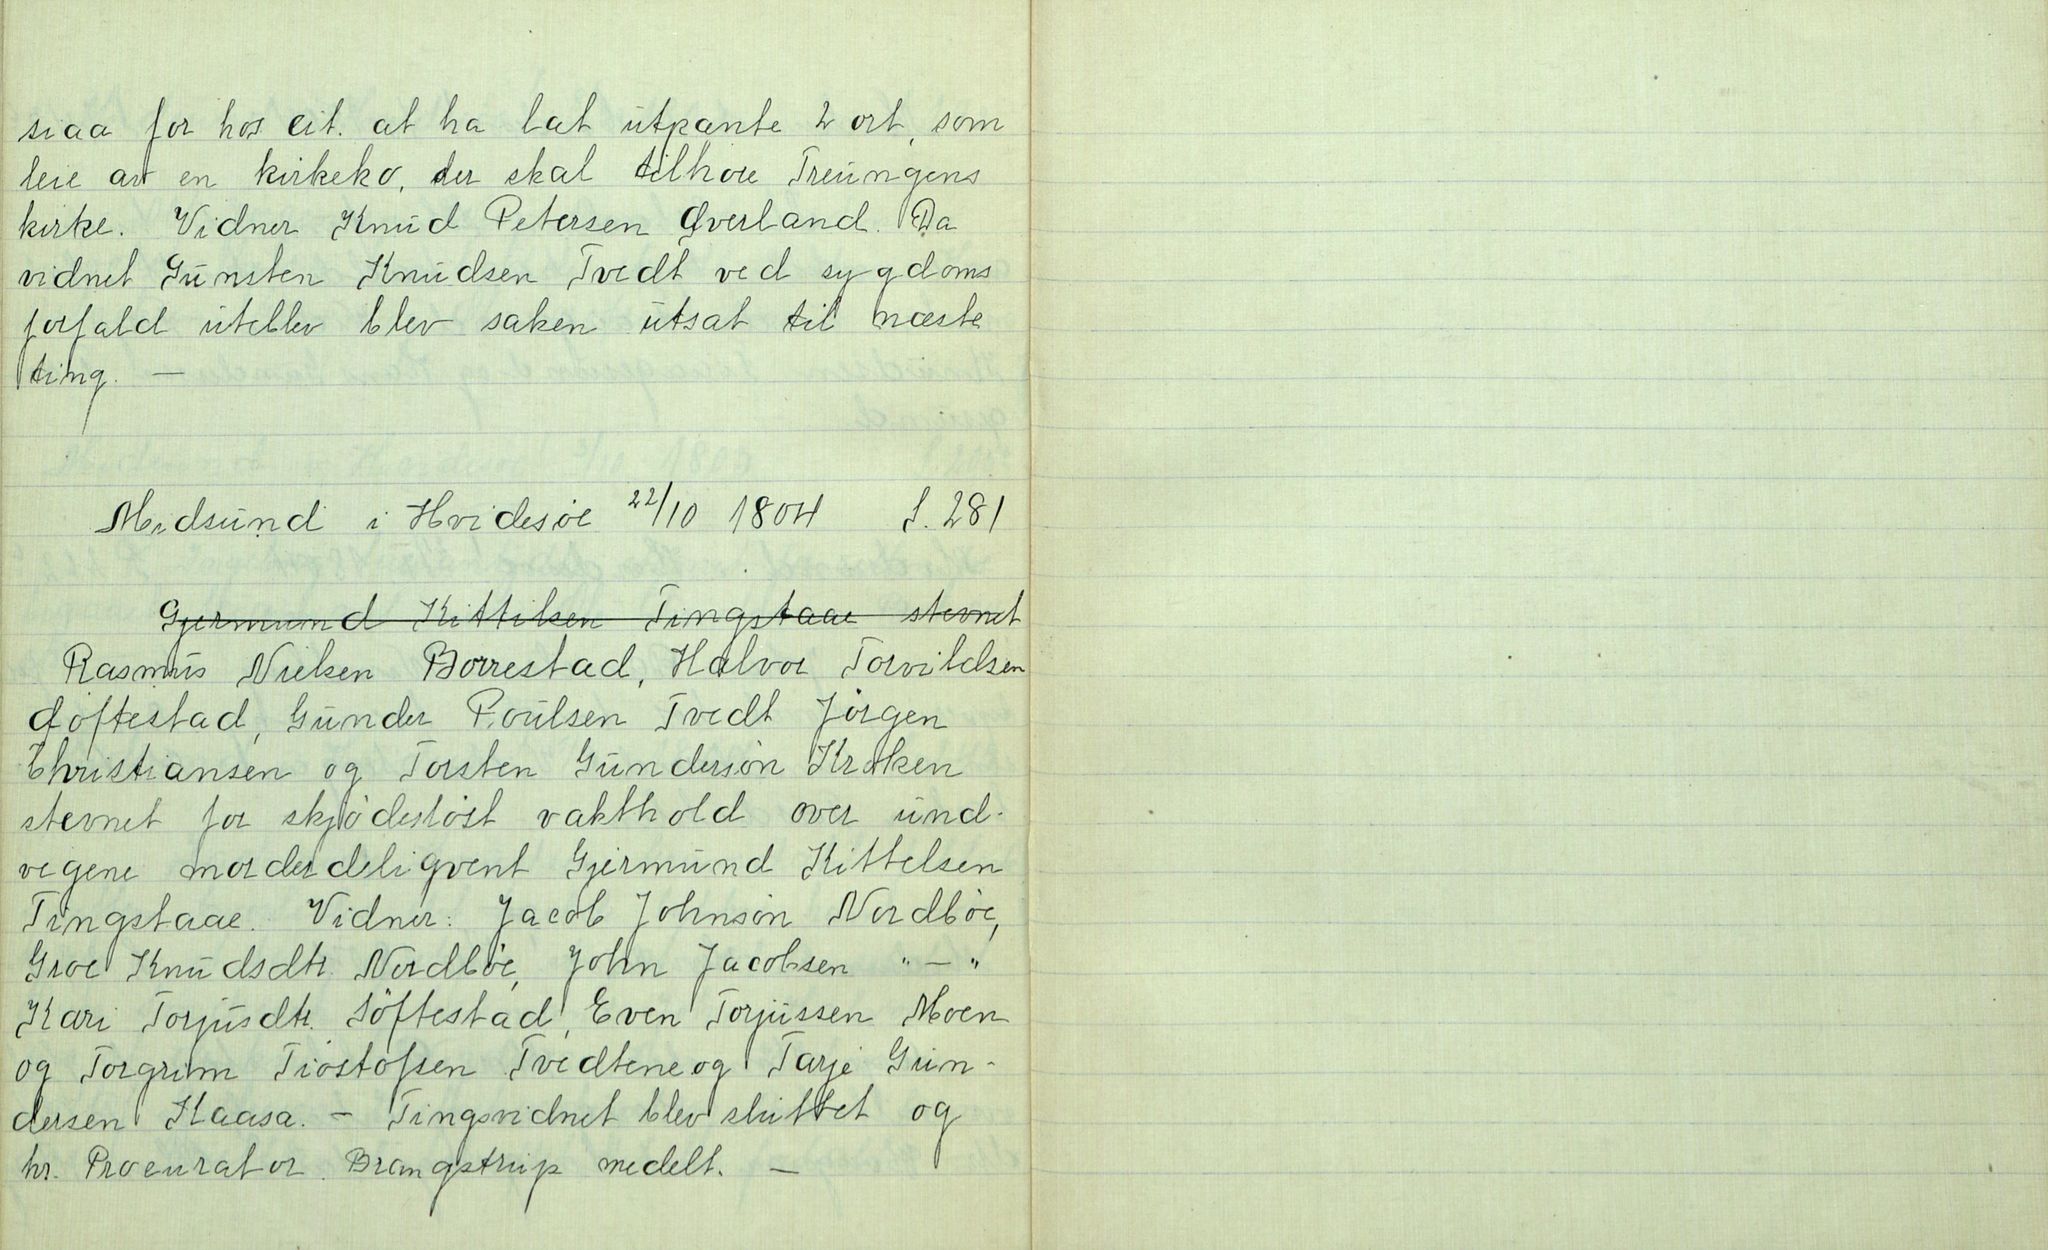 siaa for hos cit. at ha lat utpante 2 ort, som
leie av en kirkeko, der skal tilhøre Treungens
kirke. Vidner Knud Petersen Øverland. Da
vidnet Gunsten Knudsen Tvedt ved sygdoms
forfald uteblev blev saken utsat til næste
ting. —
Midsund i Hvidesøe 22/10 1804 S. 281
Gjermund Kittilsen Tingstaae stevnet
Rasmus Nielsen Borrestad, Halvor Torvildsen
Søftestad, Gunder Poulsen Tvedt Jørgen
Christiansen og Torsten Gundersøn Kroken
stevnet for skjødesløst vakthold over und-
vegene morderdeliqvent Gjermund Kittelsen
Tingstaae. Vidner: Jacob Johnsøn Nordbøe,
Groe Knudsdtr. Nordbøe, John Jacobsen " — "
Kari Torjusdtr. Søftestad, Even Torjussen Moen
og Torgrim Tiostofsen Tvedtene og Tarje Gun-
dersen Kaasa. — Tingsvidnet blev sluttet og
hr. Procurator Brangstrup medelt. —